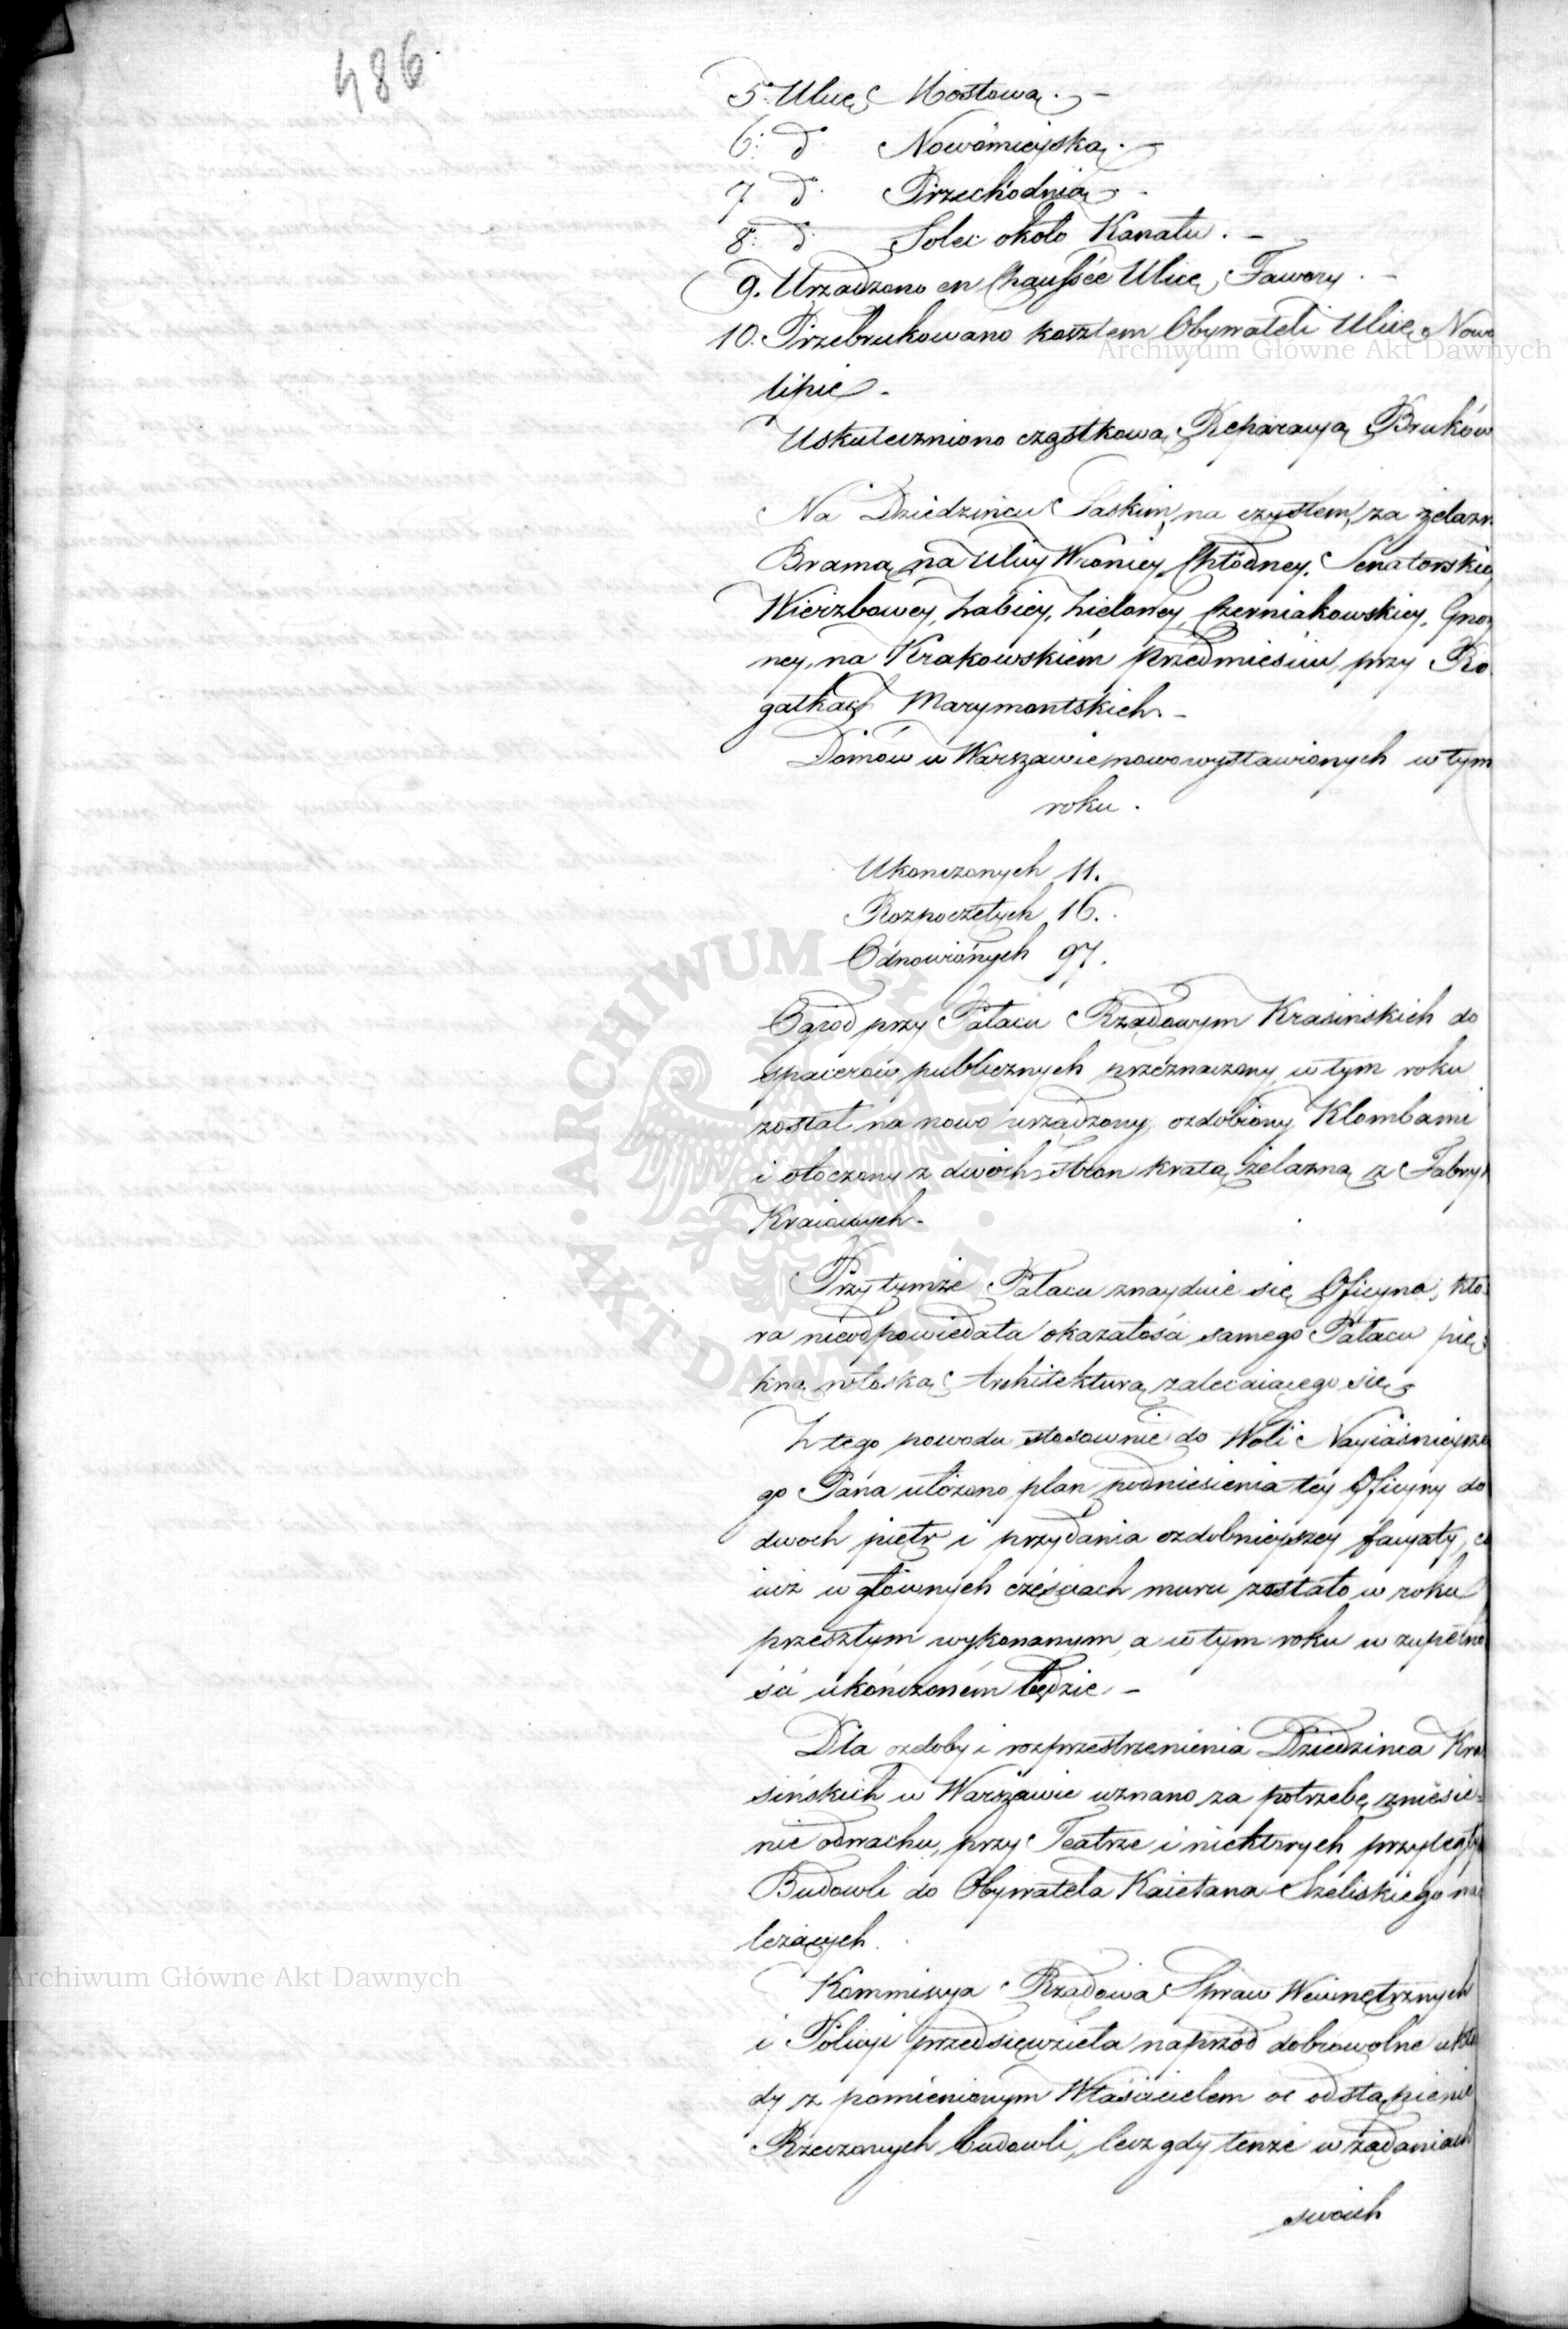 486.
5. Ulicę Mostową. –
6. d° Nowomieyską. –
7 d° Przechodnią –
8. d° Solec około Kanału. –
9. Urządzono en Chaussée Ulicę Fawory. –
10. Przebrukowano kosztem Obywateli Ulicę Nowo
lipie –
Uskuteczniono cząstkową Reparacyą Bruków
Na Dziedzińcu Saskim, na czystem, za żelazn
Bramą, na Ulicy Wroniey, Chłodney, Senatorskie
Wierzbowey, Żabiey, Zieloney, Czerniakowskiey, Gnoy
ney, na Krakowskiém Przedmieściu, przy Ro
gatkach Marymontskich. –
Domów w Warszawie nowowystawionych w tym
roku.
Ukończonych 11.
Rozpoczętych 16.
Odnowionych 97.
Ogród przy Pałacu Rządowym Krasińskich do
spacerów publicznych przeznaczony, w tym roku
został na nowo urządzony, ozdobiony Klombami
i otoczony z dwóch stron kratą żelazną z Fabryk
Kraiowych. –
Przy tymże Pałacu znayduie się Oficyna, któ
ra nieodpowiedała okazałości samego Pałacu pię
kną włoską Architekturą zalecaiącego się,
Z tego powodu stosownie do Woli Nayiaśnieysze
go Pana ułożono plan podniesienia téy Oficyny do
dwoch piętr i przydania ozdobnieyszey facyaty, co
iuż w głównych częściach muru zostało w roku
przeszłym wykonanym, a w tym roku w zupełno
ści ukończoném będzie. –
Dla ozdoby i rozprzestrzenienia Dziedzińca Kra
sińskich w Warszawie uznano za potrzebę zniesie-
nie odwachu, przy Teatrze i niektórych przyległych
Budowli do Obywatela Kaietana Szeliskiego na
leżących.
Kommissya Rządowa Spraw Wewnętrznych
i Policyi przedsięwzięła naprzód dobrowolne ukła
dy z pomienionym Właścicielem o odstąpienie
Rzeczonych budowli, lecz gdy tenże w żądaniach
swoich
Archiwum Główne Akt Dawnych
ARCHIWUM GŁÓWNE AKT DAWNYCH
Archiwum Główne Akt Dawnych